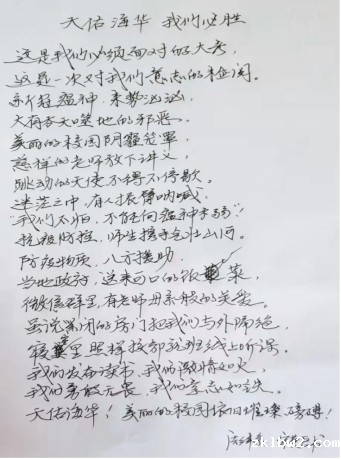 天佑海华 我们必胜
这是我们必须面对的大考,
这是一次对我们意志的检阅。
新冠瘟神,来势汹汹,
大有吞天噬地的邪恶。
美丽的校园阴霾笼罩,
慈祥的老师放下讲义,
跳动的天使不得不停歇。
迷茫之中,有人振臂呐喊,
"我们不怕,不能向瘟神示弱!"
抗疫防控,师生携手气壮山河。
防疫物质,八方援助,
当地政府,送来可口的饭菜,
微信群里,有老师母亲般的关爱。
虽说紧闭的房门把我们与外隔绝,
寝室里照样按部就班线上听课。
我们发奋读书,我们激情如火,
我们勇敢无畏,我们意志如铁。
天佑海华!美丽的校园依旧璀璨磅礴!
zk1bw2.com